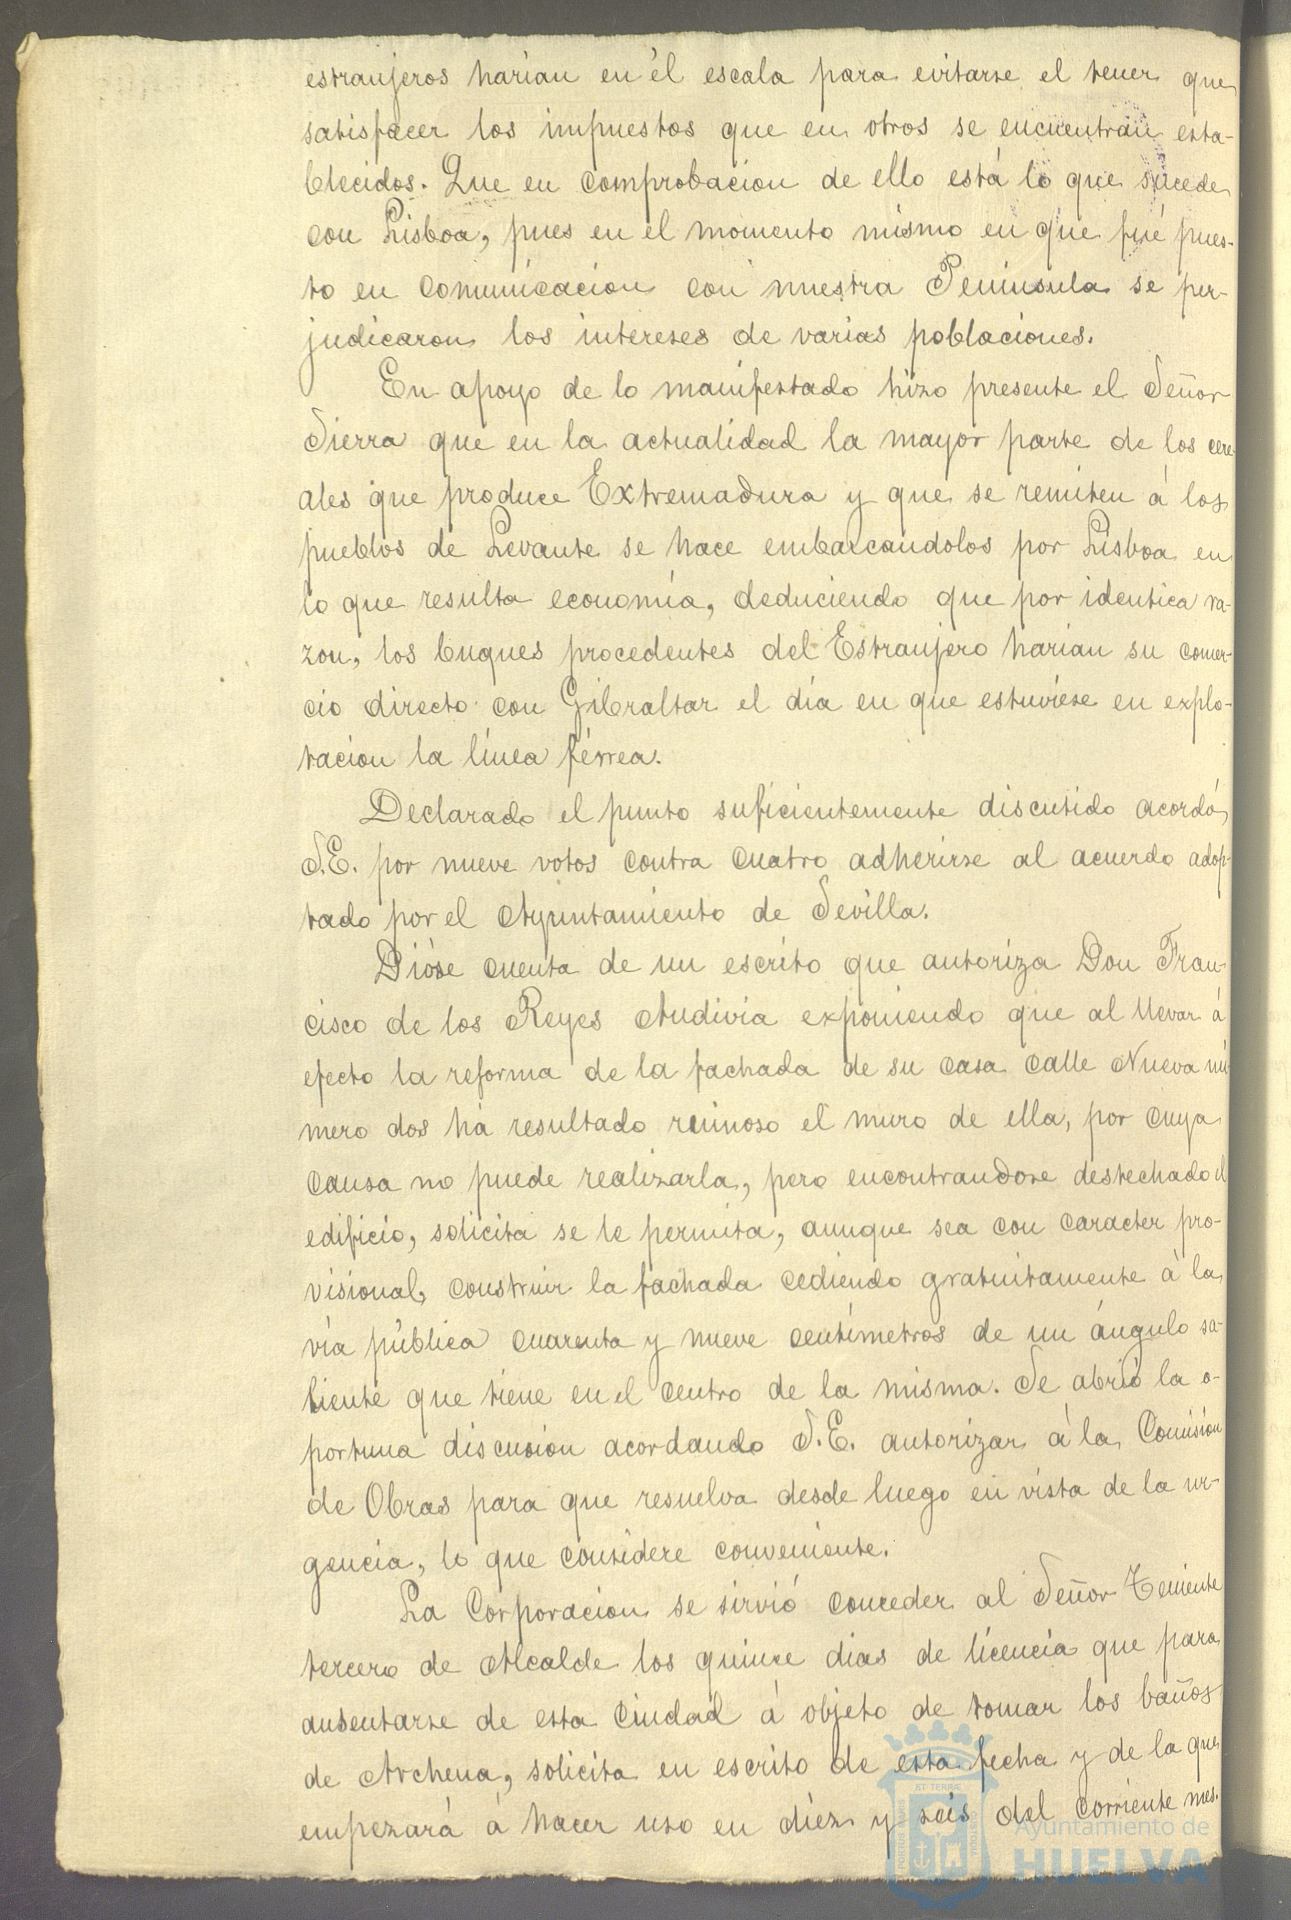 estranjeros harían en él escala para evitarse el tener que
satisfacer los impuestos que en otros se encuentran esta-
blecidos. Que en comprobacion de ello está lo que sucede
con Lisboa, pues en el momento mismo en que fué pues-
to en comunicacion con nuestra Península se per-
judicaron los intereses de varias poblaciones.
En apoyo de lo manifestado hizo presente el Señor
Sierra que en la actualidad la mayor parte de los cere-
ales que produce Extremadura y que se remiten á los
pueblos de Levante se hace embarcandolos por Lisboa en
lo que resulta economía, deduciendo que por identica ra-
zon, los buques procedentes del Estranjero harian su comer-
cio directo con Gibraltar el día en que estuviese en explo-
tacion la línea férrea.
Declarado el punto suficientemente discutido acordó
S.E. por nueve votos contra cuatro adherirse al acuerdo adop-
tado por el Ayuntamiento de Sevilla.
Dióse cuenta de un escrito que autoriza Don Fran-
cisco de los Reyes Audivia exponiendo que al llevar á
efecto la reforma de la fachada de su casa calle Nueva nú-
mero dos há resultado ruinoso el muro de ella, por cuya
causa no puede realizarla, pero encontrandose destechado el
edificio, solicita se le permita, aunque sea con caracter pro-
visional, construir la fachada cediendo gratuitamente á la
vía pública cuarenta y nueve centímetros de un ángulo sa-
liente que tiene en el centro de la misma. Se abrió la o-
portuna discusion acordando S.E. autorizar á la Comision
de Obras para que resuelva desde luego en vista de la ur-
gencia, lo que considere conveniente.
La Corporacion se sirvió conceder al Señor Teniente
tercero de Alcalde los quince dias de licencia que para
ausentarse de esta Ciudad á objeto de tomar los baños
de Archena, solicita en escrito de esta fecha y de la que
empezará á hacer uso en diez y seis del corriente mes.
Ayuntamiento de
HUELVA